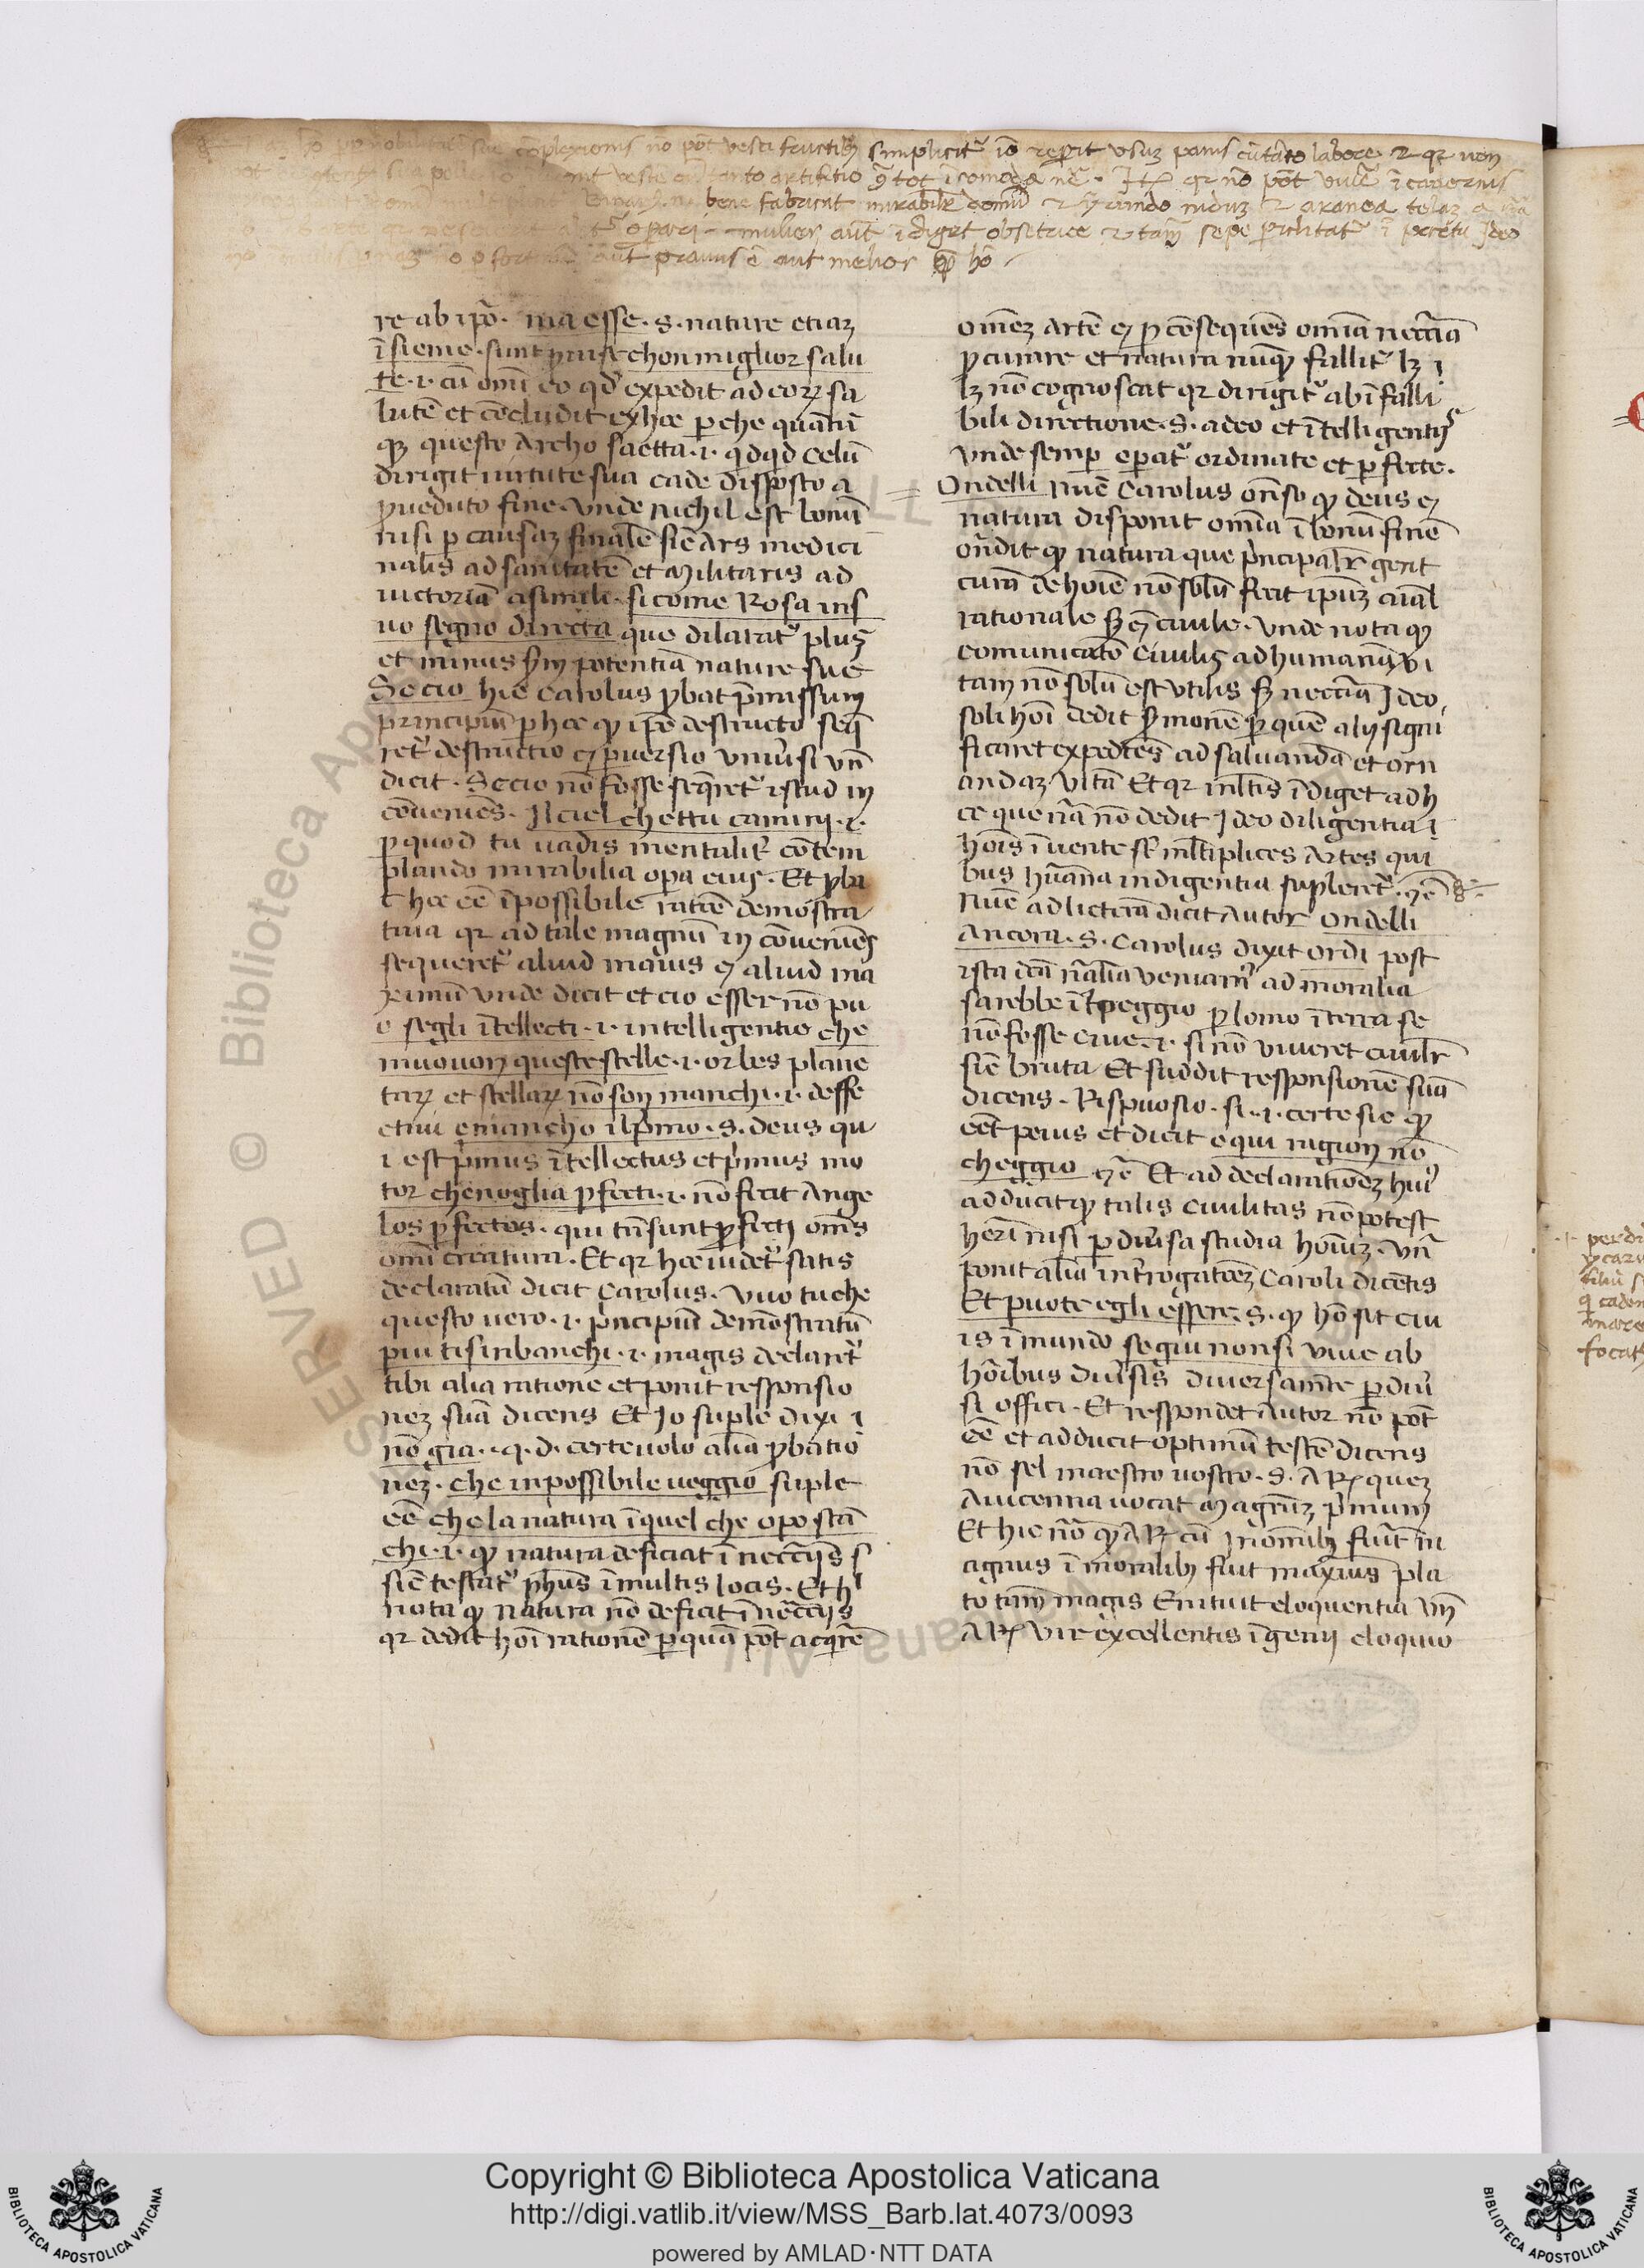 sue cōplexionis nō pōt vesci fructibꝫ simplicit᷑ iō reperit vsuꝫ panis cū tāto labore ⁊ qꝛ non
veste cū tanto artifitio ⁊ tot icomoda
bene fabricat mirabilr̄ domū ⁊ yrundo niduꝫ ⁊ aranea telaꝫ
mulier aūt īdiget obsetrice ⁊ tam̄ sepe periclitat᷑ ī partu Ideo
aut prauius ē aut melior ꝙ̄ hō
re ab ip̄o. ma esse. s. nature etiaꝫ
īsieme. sunt prouise chon miglior salu
te .i. cū omī eo qd̓ expedit ad eoꝝ sa
lutē et cōcludit ex hoc perche quātū
qꝫ questo Archo saetta .i. qͥdqͥd celū
dirigit uirtute sua cade disposto a
proueduto fine. vnde nichil est bonū
nisi ꝑ causaꝫ finalē sic Ars medici
nalis ad sanitatē et militaris ad
uictoriā a simili. si come Rosa in s
uo segno directa que dilatat᷑ plus
et minus scd̓m potentiā nature sue
Se cio hic Carolus ꝓbat p̄missum
principiū ꝑ hoc ꝙ ip̄o destructo seq̄
ret᷑ destructio ⁊ ꝑuersio vniuersi vn̄
dicit. Se cio nō fosse seq̄ret᷑ istud in
cōueniēs. Il ciel che ttu camini .i.
ꝑ quod tu uadis mentalit᷑ cōtem
plando mirabilia opa eius. Et ꝓba
t hoc eē īpossibile ratiōe demōstra
tiua qꝛ ad tale magnū incōueniēs
sequeret᷑ aliud maius ⁊ aliud ma
ximū vnde dicit et cio esser nō pu
o segli ītellecti .i. intelligentie che
muouon queste stelle .i. orbes plane
taꝝ et stellaꝝ nō son manchi .i. deffe
ctiui e mancho il p̄mo. s. deus qu
i est primus ītellectus et primus mo
tor che nogli a ꝑfecti .i. nō fecit Ange
los ꝑfectos. qui tn̄ sunt ꝑfecti om̄s
omī creatura. Et qꝛ hoc uidet᷑ satis
declaratū dicit Carolus. Vuo tu che
questo uero .i. principiū demōstratū
piu ti sinbanchi .i. magis declaret᷑
tibi alia ratione et ponit responsio
neꝫ suā dicens Et Io suple dixi i
nō gia. .q. d. certe uolo aliā ꝓbatio
neꝫ. che inpossibile ueggio suple
eē che la natura īquel che opo stā
chi .i. ꝙ natura deficiat ī neccīis s
sic testat᷑ ph̄us ī multis locis. Et h̓
nota ꝙ natura nō deficit ī neccīis
qꝛ dedit hoī rationē ꝑ quā pōt acqͥrē
omēꝫ artē ⁊ ꝑ cōsequēs omīa neccīa
ꝓcurare et natura nūqͣꝫ fallit᷑ lꝫ i
lꝫ nō cognoscat qꝛ dirigit᷑ ab īfalli
bili directione. s. a deo et ītelligentiis
vnde semꝑ oꝑat᷑ ordinate et ꝑfecte.
Ondelli nūc Carolus onso ꝙ deus ⁊
natura disponit omīa ī bonū finē
on̄dit ꝙ natura que principalr̄ gerit
curā de hoīe nō solū fecit ipuꝫ aīal
rationale sꝫ ⁊ ciuile. vnde nota ꝙ
comunicatō ciuilis ad humanā vi
tam nō solū est vtilis sꝫ neccīa Ideo
soli hoī dedit sermonē ꝑ quē alijs signi
ficaret expediēs ad saluandā et orn
andaꝫ vitā Et qꝛ ml̄tis īdiget ad h
oc que nā nō dedit Ideo diligentia i
hoīs īuente sūt ml̄tiplices artes qui
bus hūana indigentia supleret᷑. ⁊c̄
Nūc ad licterā dicit Autor ondelli
Ancora. s. Carolus dixit or di post
ista dc̄a nāalia veniam᷑ ad moralia
sarebbe īl peggio ꝑ lomo īterra se
nō fosse ciue .i. si nō viueret ciuilr̄
sic bruta Et suddit responsionē suā
dicens. Rispuosio. si .i. certe sic ꝙ
eēt peius et dicit e qui ragion nō
cheggio ⁊c̄ Et ad declarationēꝫ hui᷑
adducit ꝙ talis ciuilitas nō potest
herī nisi ꝑ diuersa studia hoīuꝫ. vn̄
ponit aliā interogatōeꝫ Caroli dicētis
Et puote egli essere. s. ꝙ hō sit ciu
is ī mundo se qiu non si viue ab
hoībus diuersis diuersamēte ꝑ diuer
si offici. Et respondet Autor nō pōt
eē et adducit optimū testē dicens
nō sel maestro uostro. s. ARꝭ queꝫ
Auicenna uocat magrūꝫ primum
Et hic nō ꝙ AR cū in omībꝫ fuīt m
agnus ī moralibꝫ fuit maxius pla
to tam̄ magis Enituit eloquentia vn̄
ARꝭ vir excellentis īgenij eloquio
perdi
focat
Copyright © Biblioteca Apostolica Vaticana
http://digi.vatlib.it/view/MSS_Barb.lat.4073/0093
powered by AMLAD·NTT DATA
BIBLIOTECA APOSTOLICA VATICANA
BIBLIOTECA APOSTOLICA VATICANA